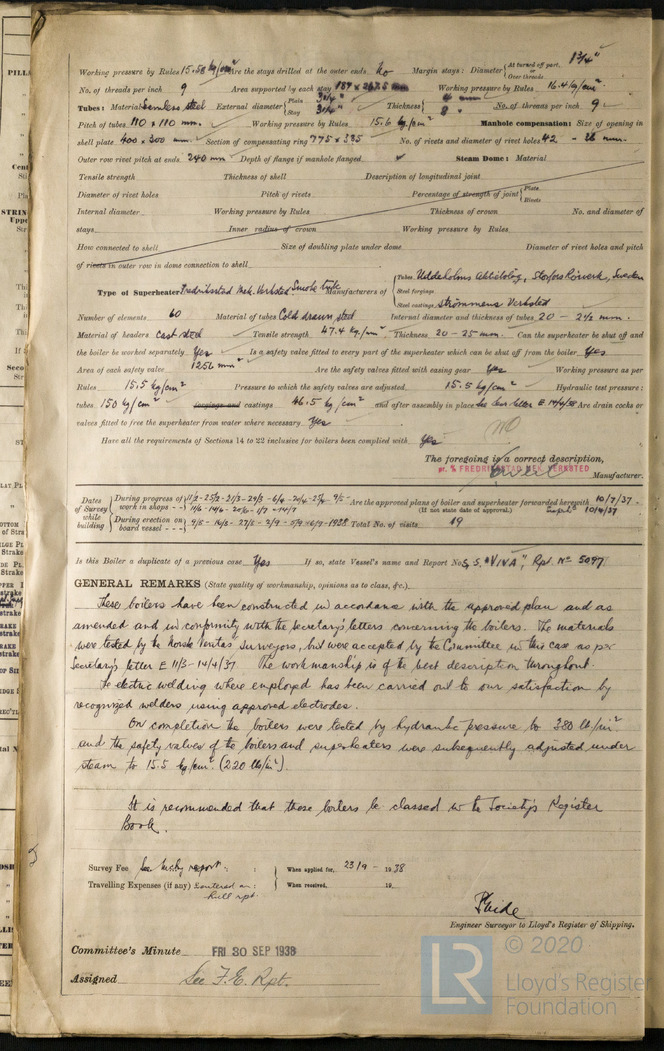 Working pressure by Rules 15.58 kg/cm² Are the stays drilled at the outer ends No Margin stays: Diameter { At turned off part, 1 3/4" Over threads
No. of threads per inch 9 Area supported by each stay Working pressure by Rules 16.4 kg/cm²
Tubes: Material Seamless steel External diameter { Plain 3 1/4" Stay 3 1/4" Thickness { 8 " No. of threads per inch 9
Pitch of tubes 110 x 110 mm. Working pressure by Rules 15.6 kg/cm² Manhole compensation: Size of opening in
shell plate 400 x 300 mm Section of compensating ring 775 x 335 No. of rivets and diameter of rivet holes 42 - 26 mm.
Outer row rivet pitch at ends 240 mm Depth of flange if manhole flanged ✓ Steam Dome: Material
Tensile strength Thickness of shell Description of longitudinal joint
Diameter of rivet holes Pitch of rivets Percentage of strength of joint { Plate Rivets
Internal diameter Working pressure by Rules Thickness of crown No. and diameter of
stays Inner radius of crown Working pressure by Rules
How connected to shell Size of doubling plate under dome Diameter of rivet holes and pitch
of rivets in outer row in dome connection to shell
Type of Superheater Fredriksstad Mek. Verksted Smoke tube Manufacturers of { Tubes Uddeholms Aktiebolag, Storfors Rörverk, Sweden
Steel forgings
Steel castings Strømmens Verksted
Number of elements 60 Material of tubes Cold drawn steel Internal diameter and thickness of tubes 20 - 2 1/2 mm.
Material of headers Cast steel Tensile strength 47.4 kg/mm² Thickness 20 - 25 mm. Can the superheater be shut off and
the boiler be worked separately Yes Is a safety valve fitted to every part of the superheater which can be shut off from the boiler Yes
Area of each safety valve 1256 mm² Are the safety valves fitted with easing gear Yes Working pressure as per
Rules 15.5 kg/cm² Pressure to which the safety valves are adjusted 15.5 kg/cm² Hydraulic test pressure:
tubes 150 kg/cm² forgings and castings 46.5 kg/cm² and after assembly in place See Sec. letter E 14/4/38 Are drain cocks or
valves fitted to free the superheater from water where necessary Yes
Have all the requirements of Sections 14 to 22 inclusive for boilers been complied with Yes
The foregoing is a correct description,
pr. % FREDRIKSSTAD MEK. VERKSTED
Manufacturer.
Dates of Survey while building { During progress of work in shops - - { 11/2 - 25/2 - 21/3 - 29/3 - 6/4 - 20/4 - 27/4 - 9/5 - Are the approved plans of boiler and superheater forwarded herewith 10/7/37.
11/6 - 14/6 - 20/6 - 1/7 - 14/7 (If not state date of approval.) Superhr. 10/4/37
During erection on board vessel - - - { 9/5 - 16/5 - 27/5 - 2/9 - 5/9 - 6/9 - 1938 Total No. of visits 19
Is this Boiler a duplicate of a previous case Yes If so, state Vessel's name and Report No. S.S. "VIVA", Rpt. No 5097
GENERAL REMARKS (State quality of workmanship, opinions as to class, &c.)
These boilers have been constructed in accordance with the approved plan and as
amended and in conformity with the Secretary's letters concerning the boilers. The materials
were tested by the Norske Veritas Surveyors, but were accepted by the Committee in this case as per
Secretary's letter E 11/3 - 14/4/37. The workmanship is of the best description throughout.
The electric welding where employed has been carried out to our satisfaction by
recognized welders using approved electrodes.
On completion the boilers were tested by hydraulic pressure to 380 lb/in²
and the safety valves of the boilers and superheaters were subsequently adjusted under
steam to 15.5 kg/cm² (220 lb/in²).
It is recommended that these boilers be classed in the Society's Register
Book.
Survey Fee See Mchy report : : When applied for, 23/9 - 1938
Travelling Expenses (if any) £ entered on : When received, 19
hull rpt.
Engineer Surveyor to Lloyd's Register of Shipping.
Committee's Minute FRI 30 SEP 1938
Assigned See F.E. Rpt.
LR © 2020
Lloyd's Register
Foundation